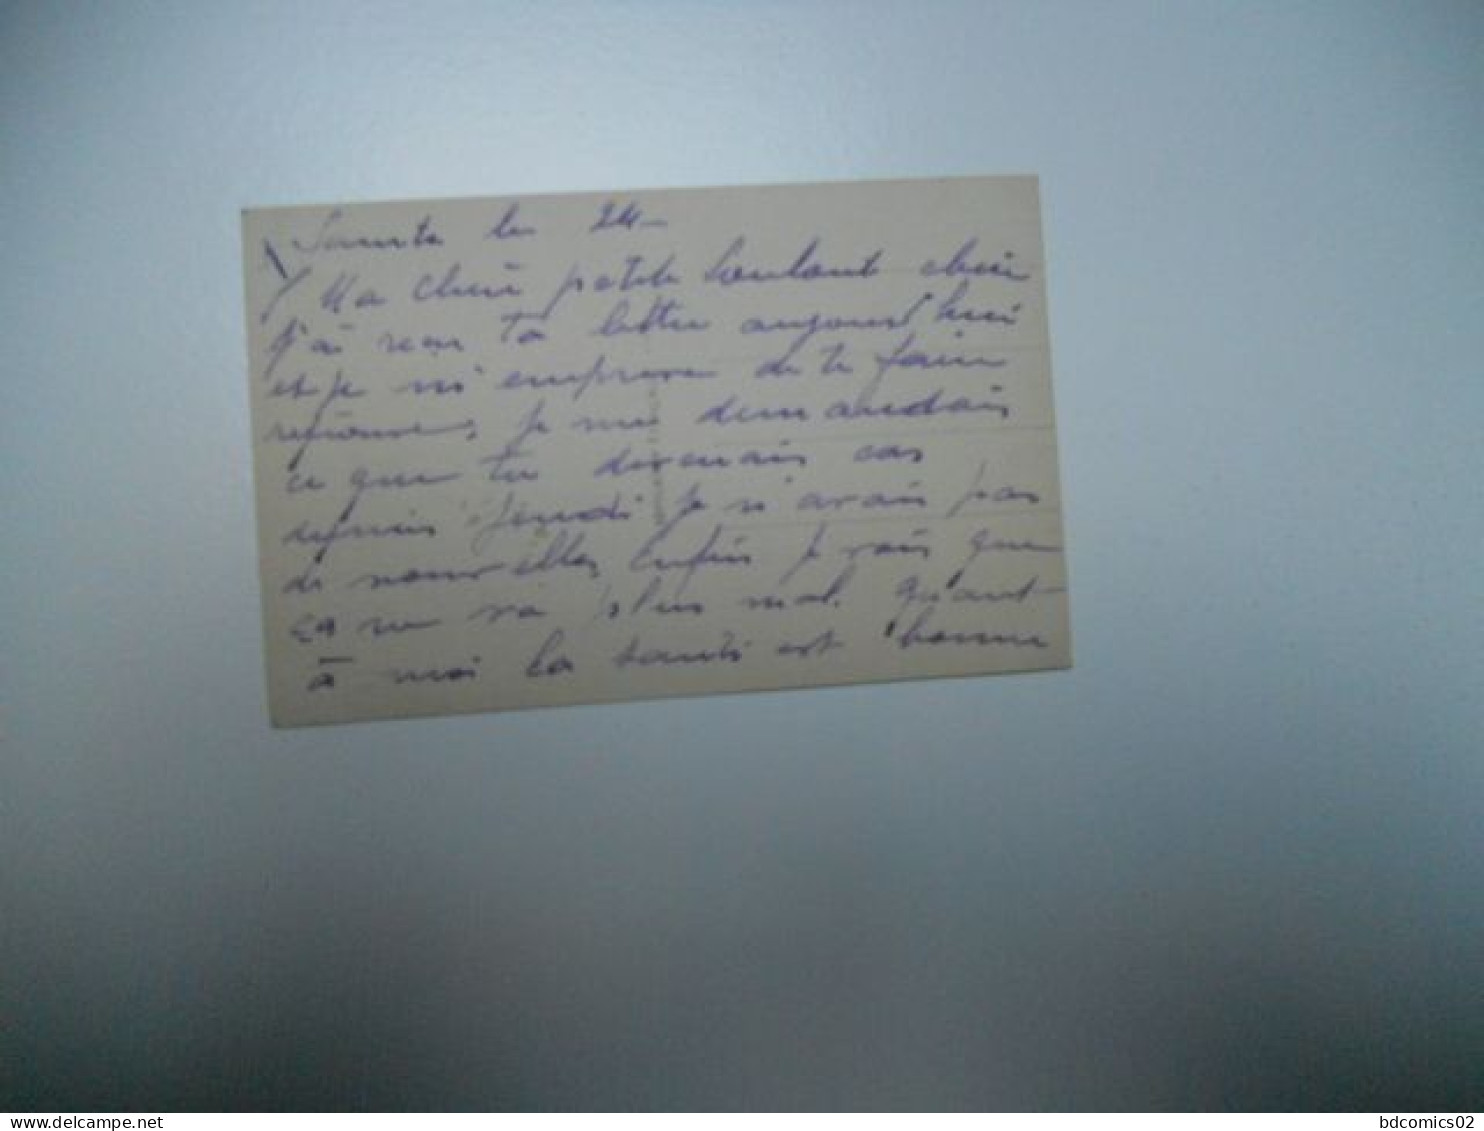 le 24 -
Ma cheri petite cheri
j'ai recu ta lettre aujourd'hui
et je m'emprese de te faire
reponse, je me demandais
ce que tu devenais car
depuis jeudi je n'avais pas
de nouvelles, enfin je vois que
ça ne va plus mal. quant
à moi la santé est bonne
delcampe.net
bdcomics02